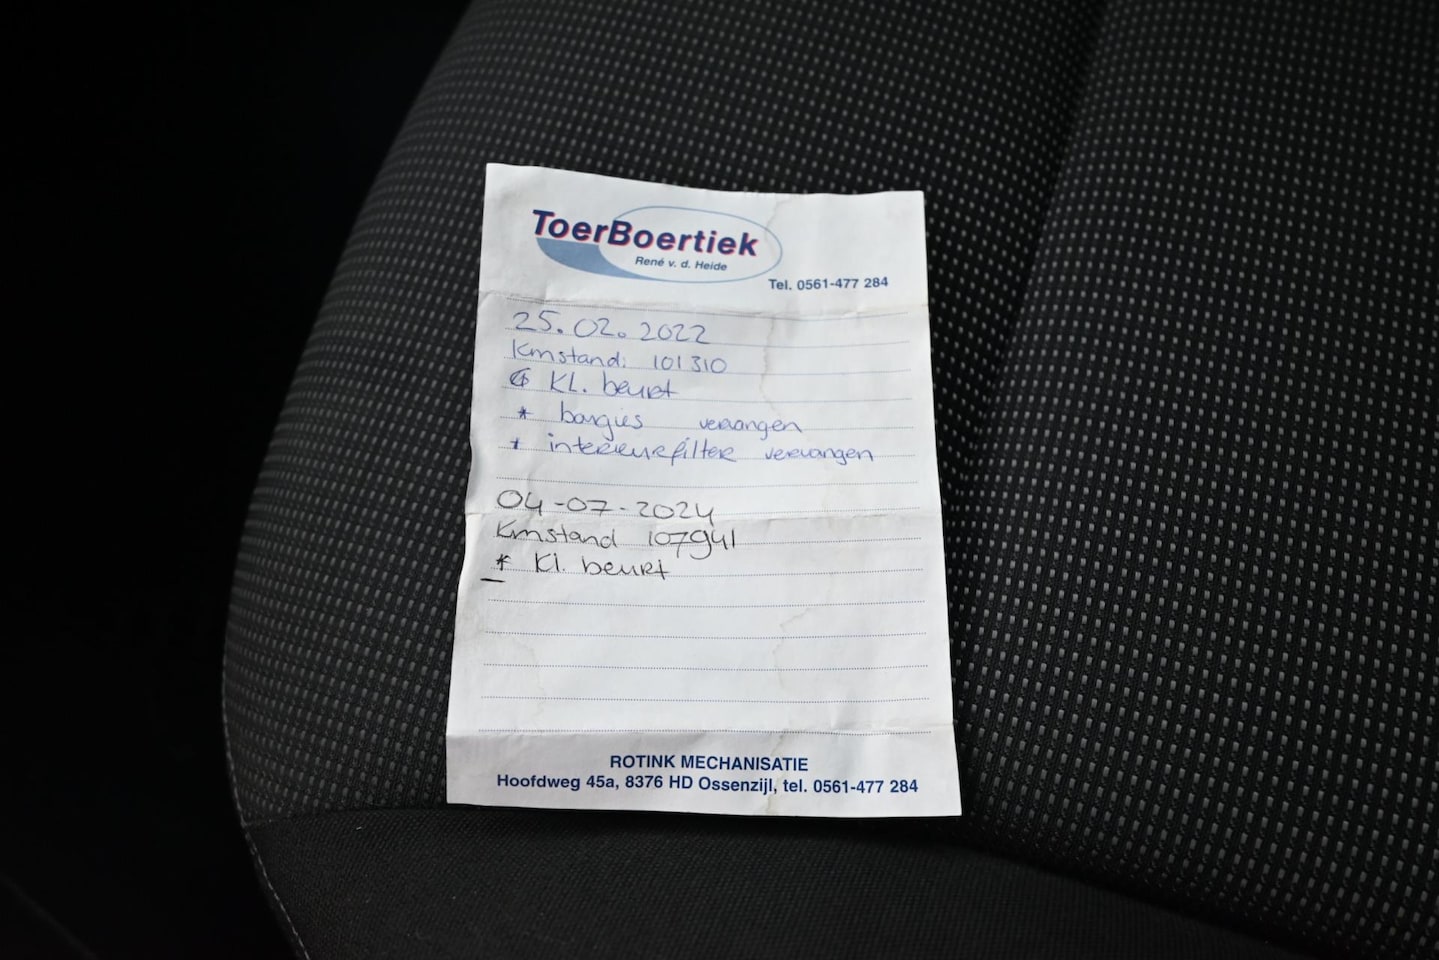 ToerBoertiek
René v. d. Heide
Tel. 0561-477 284
25.02.2022
Kmstand: 101310
KL. beurt
* bougies vervangen
* interieurfilter vervangen
04-07-2024
Kmstand 107941
* Kl. beurt
ROTINK MECHANISATIE
Hoofdweg 45a, 8376 HD Ossenzijl, tel. 0561-477 284